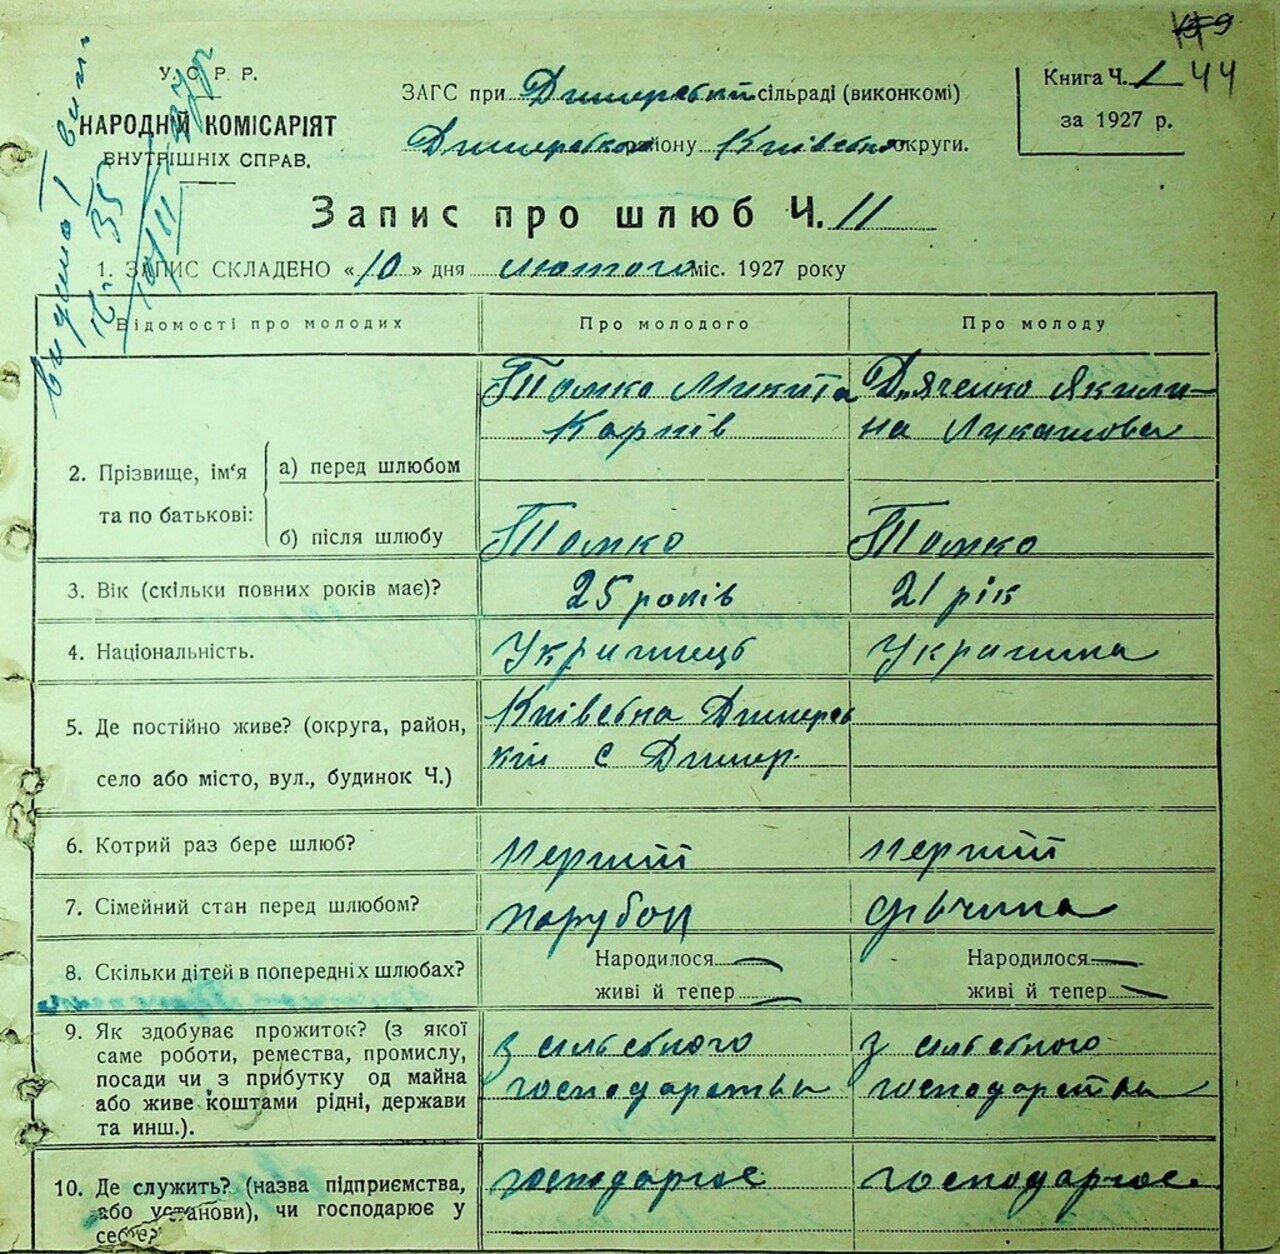 44
У. С. Р. Р.
НАРОДНІЙ КОМІСАРІЯТ
ВНУТРІШНІХ СПРАВ.
ЗАГС при Димерський сільраді (виконкомі)
Димерського району Київської округи.
Книга Ч. 1
за 1927 р.
Запис про шлюб Ч. 11
1. ЗАПИС СКЛАДЕНО «10» дня лютого міс. 1927 року
Відомості про молодих Про молодого Про молоду
Томко Микита Дяченко Якили-
Карпів на Лукашова
2. Прізвище, ім'я та по батькові:
а) перед шлюбом
б) після шлюбу Томко Томко
3. Вік (скільки повних років має)? 25 років 21 рік
4. Національність. Украинець Украинка
5. Де постійно живе? (округа, район,
село або місто, вул., будинок Ч.)
Київсбка Димерсь
кий с Димер.
6. Котрий раз бере шлюб? перший перший
7. Сімейний стан перед шлюбом? парубок дівчина
8. Скільки дітей в попередніх шлюбах? Народилося — Народилося —
живі й тепер — живі й тепер —
9. Як здобуває прожиток? (з якої
саме роботи, ремества, промислу,
посади чи з прибутку од майна
або живе коштами рідні, держави
та инш.).
з сильсбкого з сильсбкого
господарства господарства
10. Де служить? (назва підприємства,
або установи), чи господарює у
себе?
господарює господарює